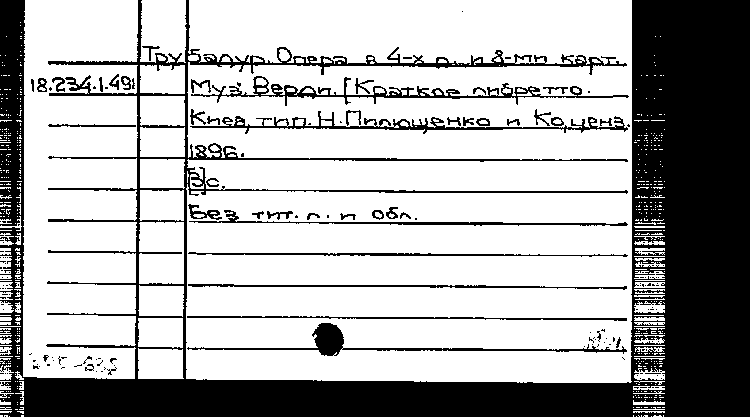 Трубадур. Опера в 4-х д. и 8-ми карт.
18.234.1.49 Муз. Верди. [Краткое либретто.
Киев, тип. Н. Пилющенко и Ко, ценз.
1896.
[3]с.
Без тит. л. и обл.